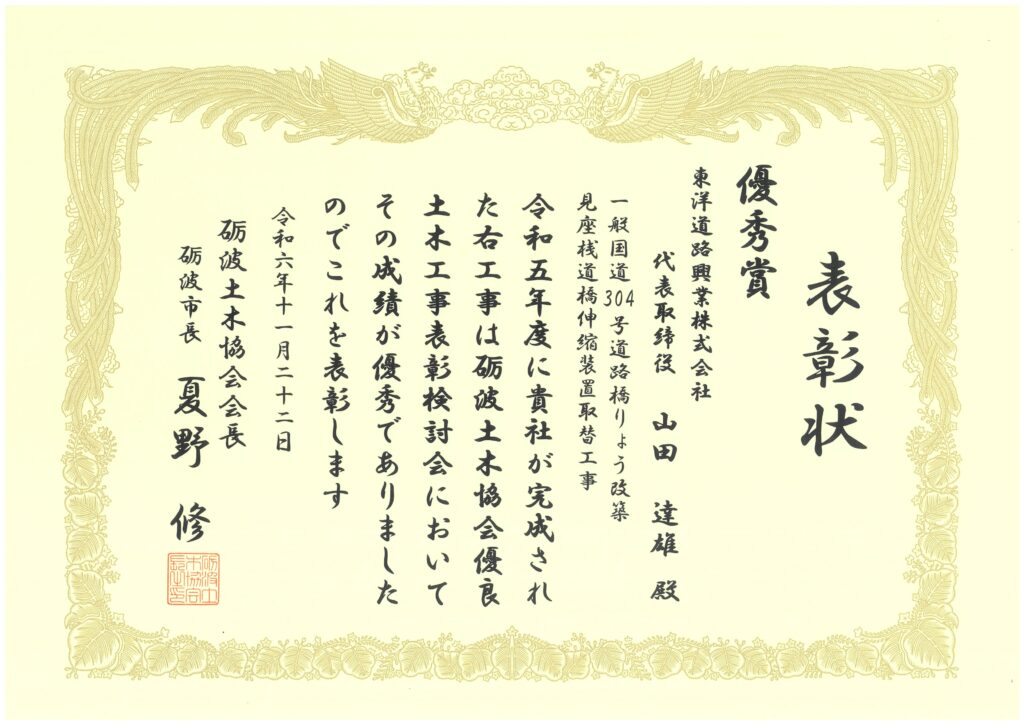 表彰状
優秀賞
東洋道路興業株式会社
代表取締役 山田 達雄 殿
一般国道304号道路橋りょう改築
見座桟道橋伸縮装置取替工事
令和五年度に貴社が完成され
た右工事は砺波土木協会優良
土木工事表彰検討会において
その成績が優秀でありました
のでこれを表彰します
令和六年十一月二十二日
砺波土木協会会長
砺波市長 夏野 修